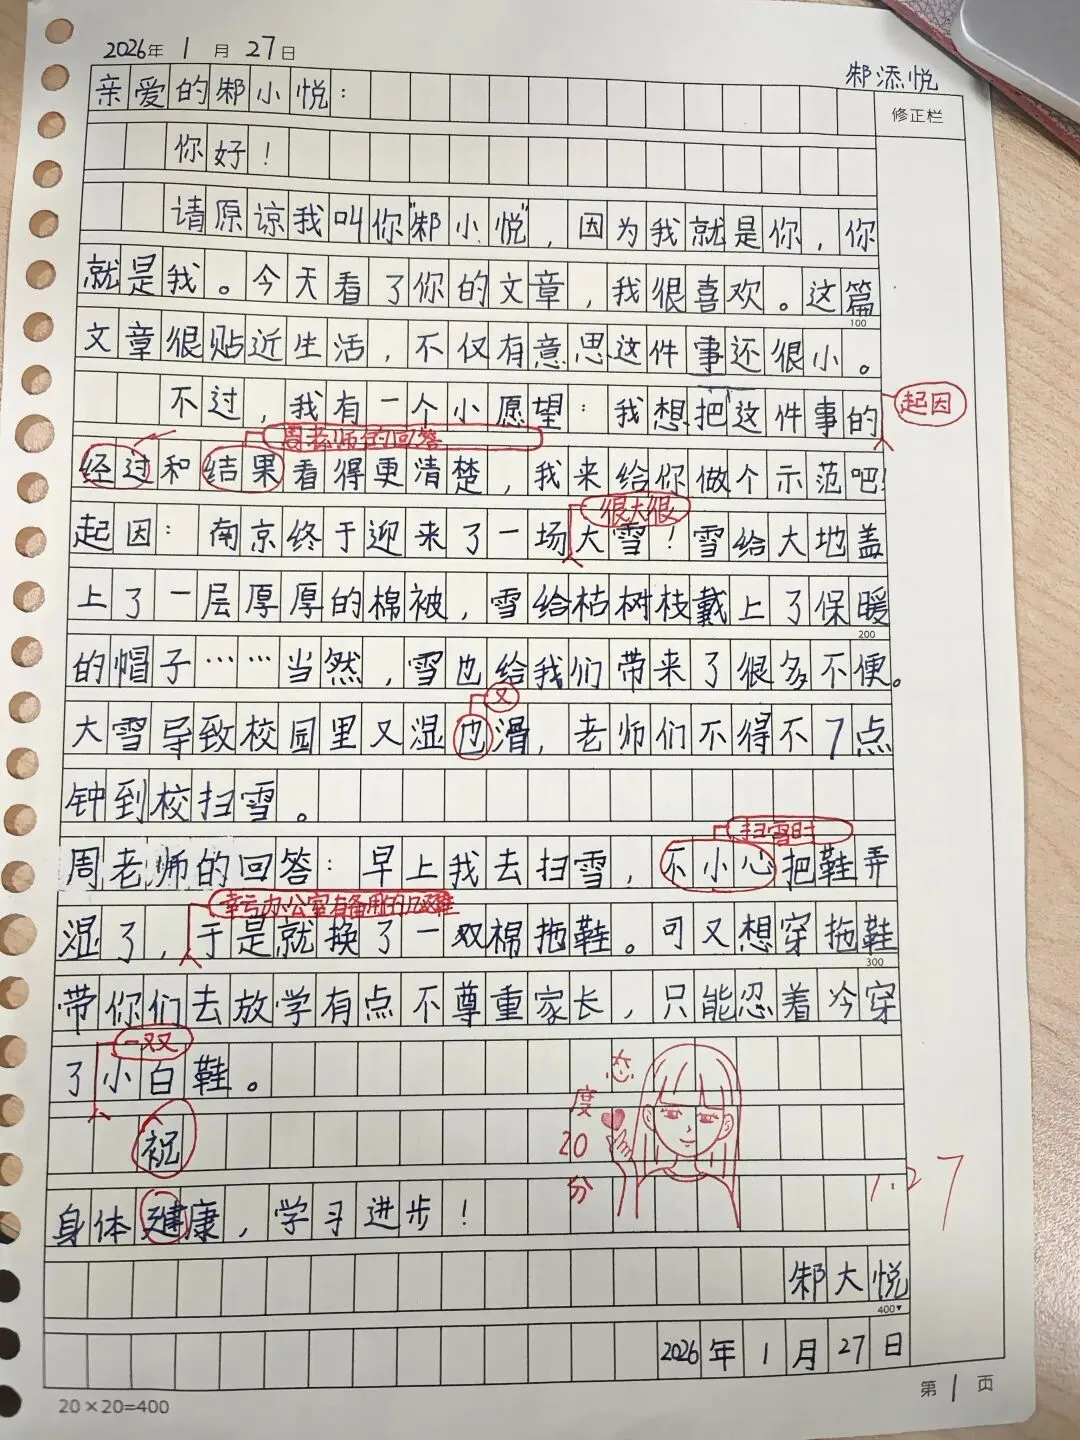 2026年 1 月 27日
邾添悦
修正栏
亲爱的邾小悦：
你好！
请原谅我叫你"邾小悦"，因为我就是你，你
就是我。今天看了你的文章，我很喜欢。这篇
100
文章很贴近生活，不仅有意思这件事还很小。
不过，我有一个小愿望：我想把这件事的
起因
周老师的回答
经过和结果看得更清楚，我来给你做个示范吧！
很大很
起因：南京终于迎来了一场大雪！雪给大地盖
上了一层厚厚的棉被，雪给枯树枝戴上了保暖
200
的帽子……当然，雪也给我们带来了很多不便。
又
大雪导致校园里又湿也滑，老师们不得不7点
钟到校扫雪。
扫雪时
周老师的回答：早上我去扫雪，不小心把鞋弄
幸亏办公室有备用的几双鞋
湿了，于是就换了一双棉拖鞋。可又想穿拖鞋
300
带你们去放学有点不尊重家长，只能忍着冷穿
一双
了小白鞋。
态度20分
祝
1.27
身体健康，学习进步！
邾大悦
400
2026年1月27日
20×20=400
第 1 页